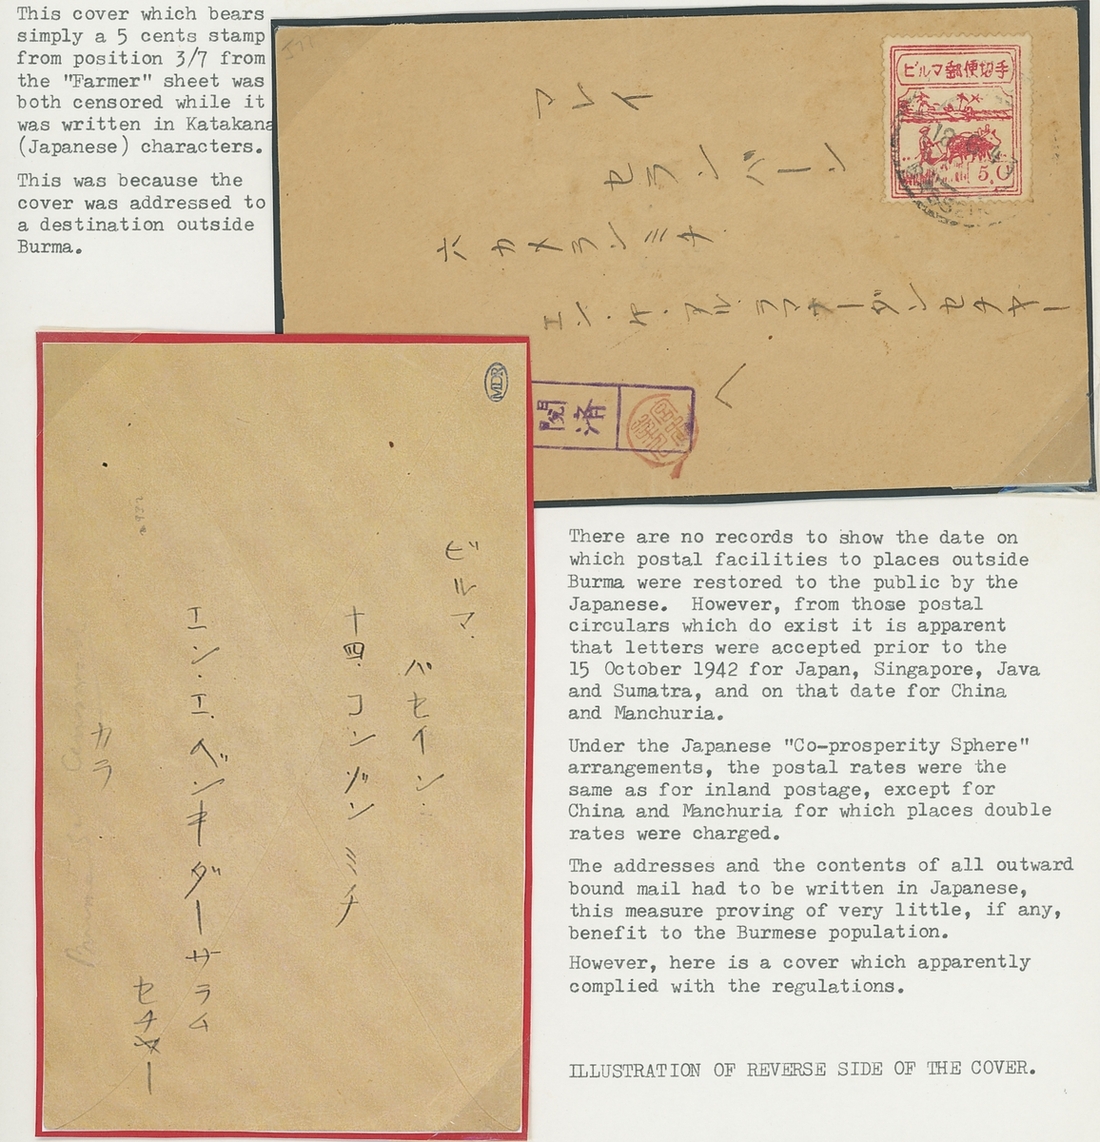 This cover which bears
simply a 5 cents stamp
from position 3/7 from
the "Farmer" sheet was
both censored while it
was written in Katakana
(Japanese) characters.
This was because the
cover was addressed to
a destination outside
Burma.
ビルマ郵便切手
5.C
マレイ
セランバーン
六カメランミチ
エン.ケ.アル.ラマナーダンセチヤー
へ
閲済
MDR
ビルマ.
バセイン.
十四.コンゾンミチ
エン.エ.ベンキダーサラム
セチヤー
カラ
There are no records to show the date on
which postal facilities to places outside
Burma were restored to the public by the
Japanese.  However, from those postal
circulars which do exist it is apparent
that letters were accepted prior to the
15 October 1942 for Japan, Singapore, Java
and Sumatra, and on that date for China
and Manchuria.
Under the Japanese "Co-prosperity Sphere"
arrangements, the postal rates were the
same as for inland postage, except for
China and Manchuria for which places double
rates were charged.
The addresses and the contents of all outward
bound mail had to be written in Japanese,
this measure proving of very little, if any,
benefit to the Burmese population.
However, here is a cover which apparently
complied with the regulations.
ILLUSTRATION OF REVERSE SIDE OF THE COVER.